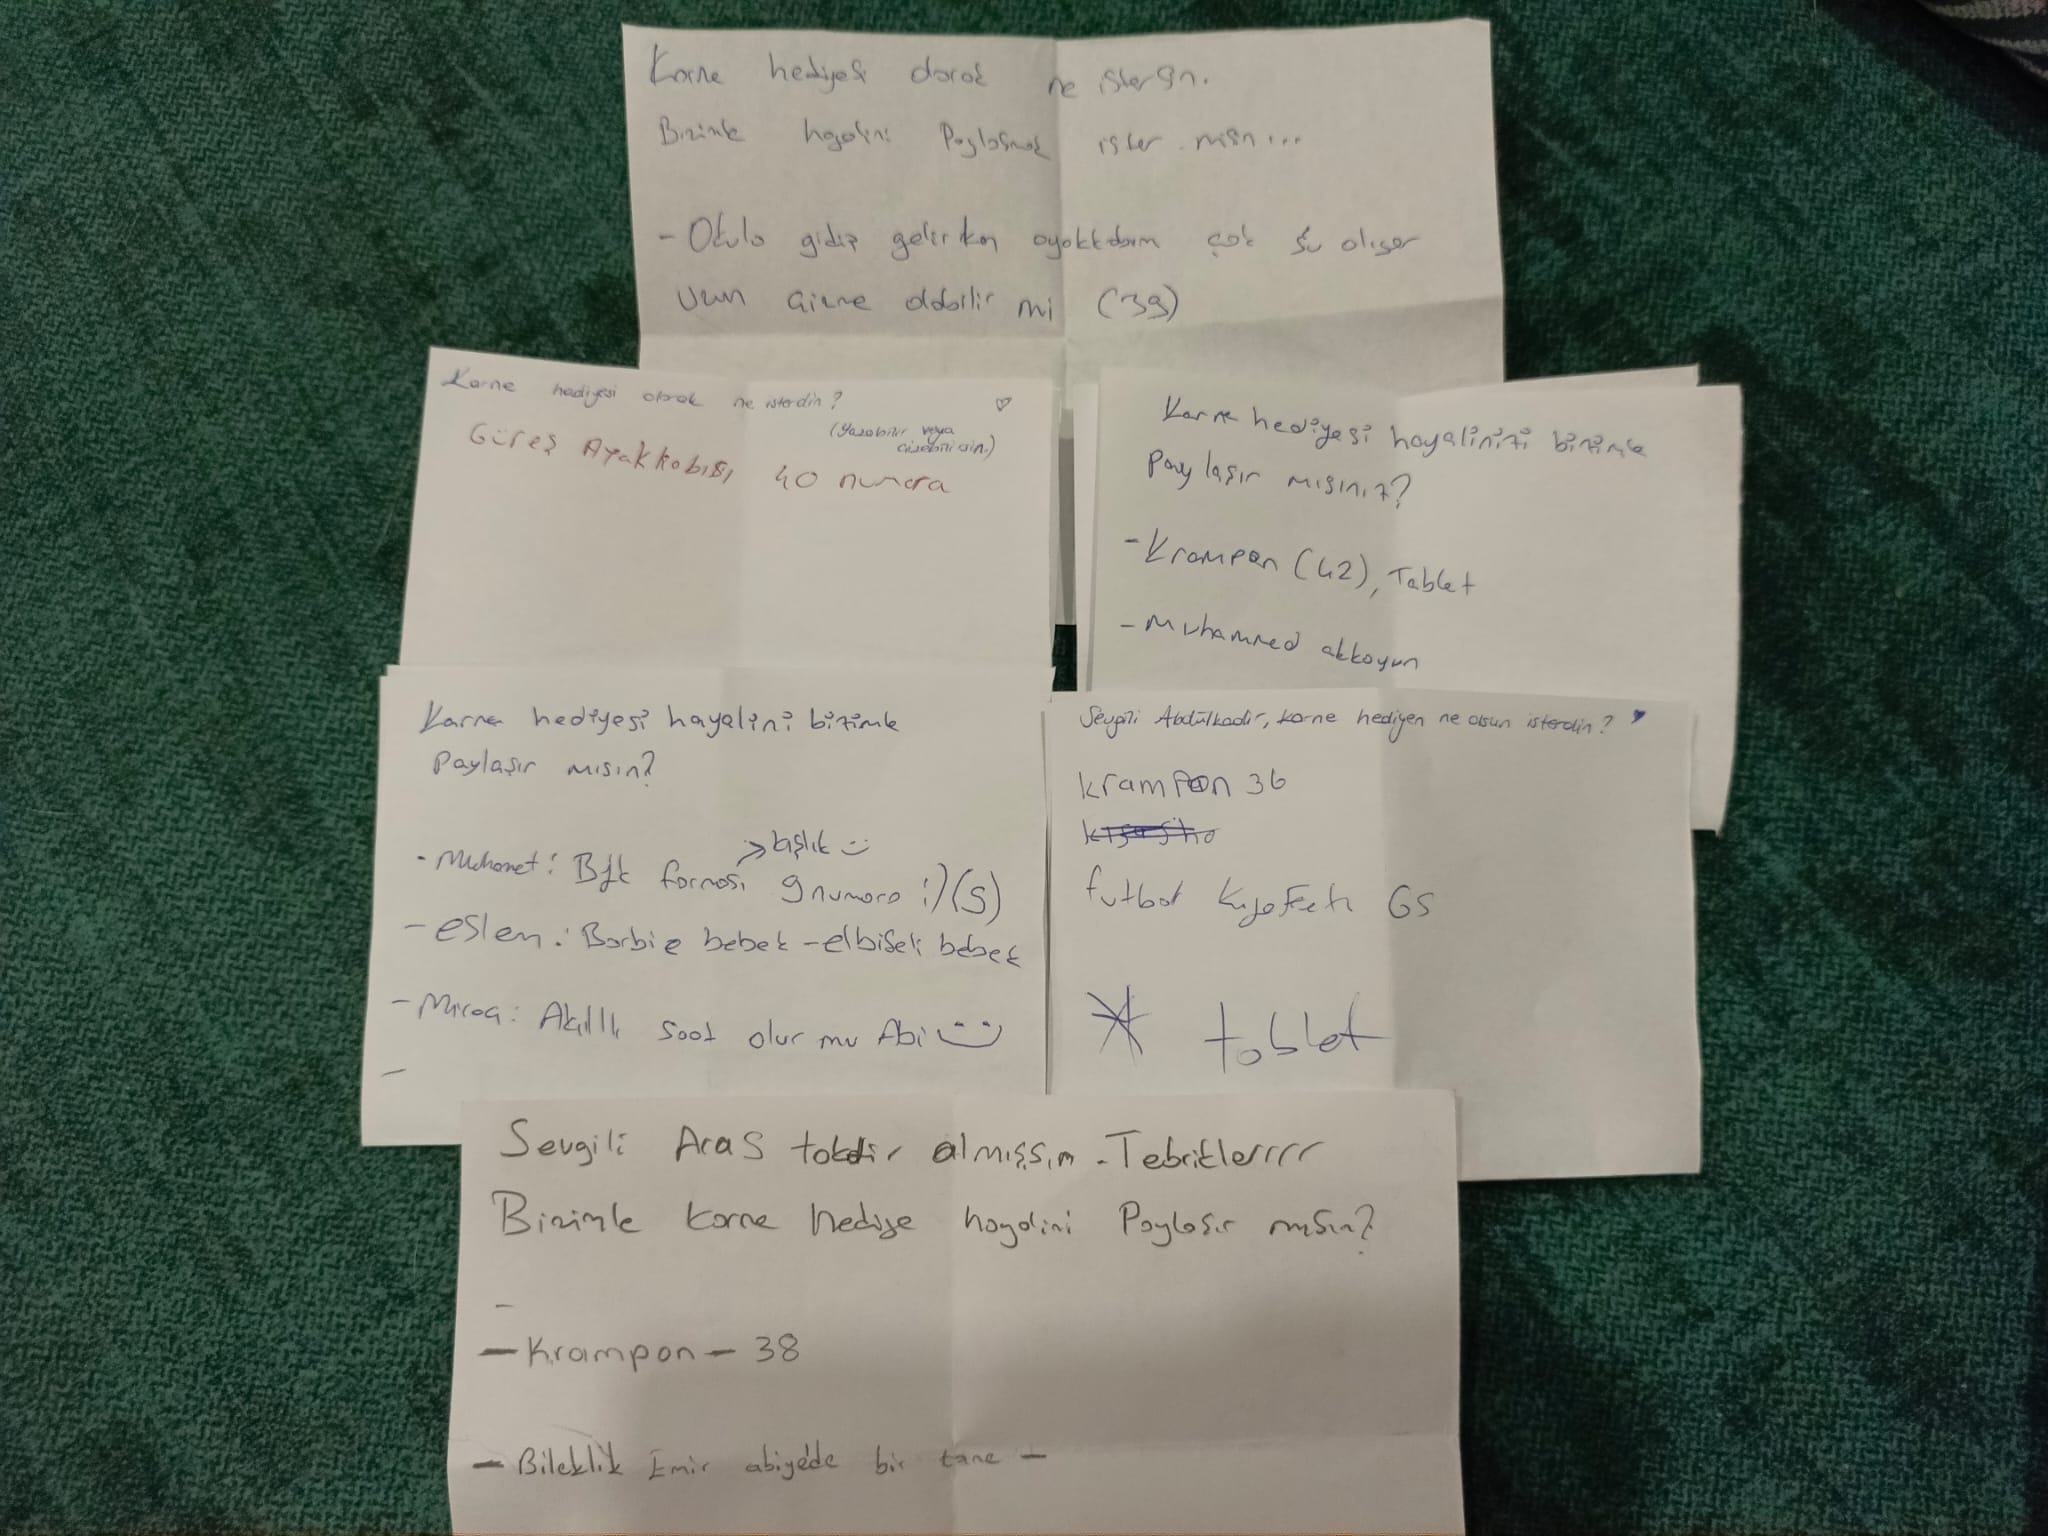 Karne hediyesi olarak ne istersin.
Bizimle hayalini Paylaşmak ister misin...
- Okula gidip gelirken ayakkabım çok su alıyor
uzun çizme olabilir mi (39)
Karne hediyesi olarak ne isterdin?
(Yazabilir veya
çizebilirsin.)
Güreş Ayakkabısı 40 numara
Karne hediyesi hayalinizi bizimle
Paylaşır mısınız?
- Krampon (42), Tablet
- Muhammed akkoyun
Karne hediyesi hayalini bizimle
Paylaşır mısın?
→ başlık
- Muhamet: Bjk forması 9 numara :) (S)
- eslem: Barbie bebek - elbiseli bebek
- Miraç: Akıllı saat olur mu Abi
Sevgili Abdülkadir, karne hediyen ne olsun isterdin?
krampon 36
futbol kıyafeti GS
tablet
Sevgili Aras takdir almışsın. Tebriklerrrr
Bizimle karne hediye hayalini Paylaşır mısın?
-
- Krampon - 38
- Bileklik Emir abiyede bir tane -